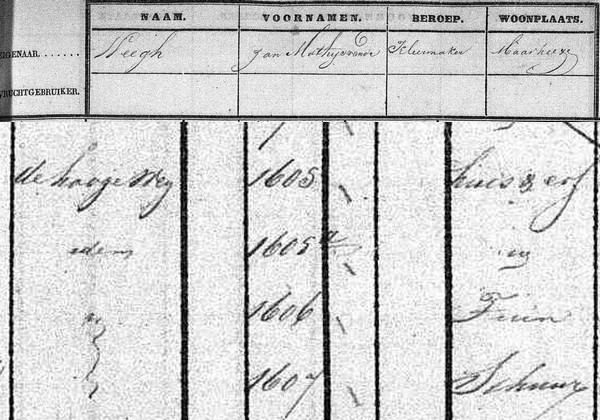 NAAM. VOORNAMEN. BEROEP. WOONPLAATS.
EIGENAAR. ...... Neegh Jan Mathijs Kleermaker Maarheeze
VRUCHTGEBRUIKER.
de hooge Weg 1605 huis & erf
idem 1605a
1606 Tuin
1607 Schuur